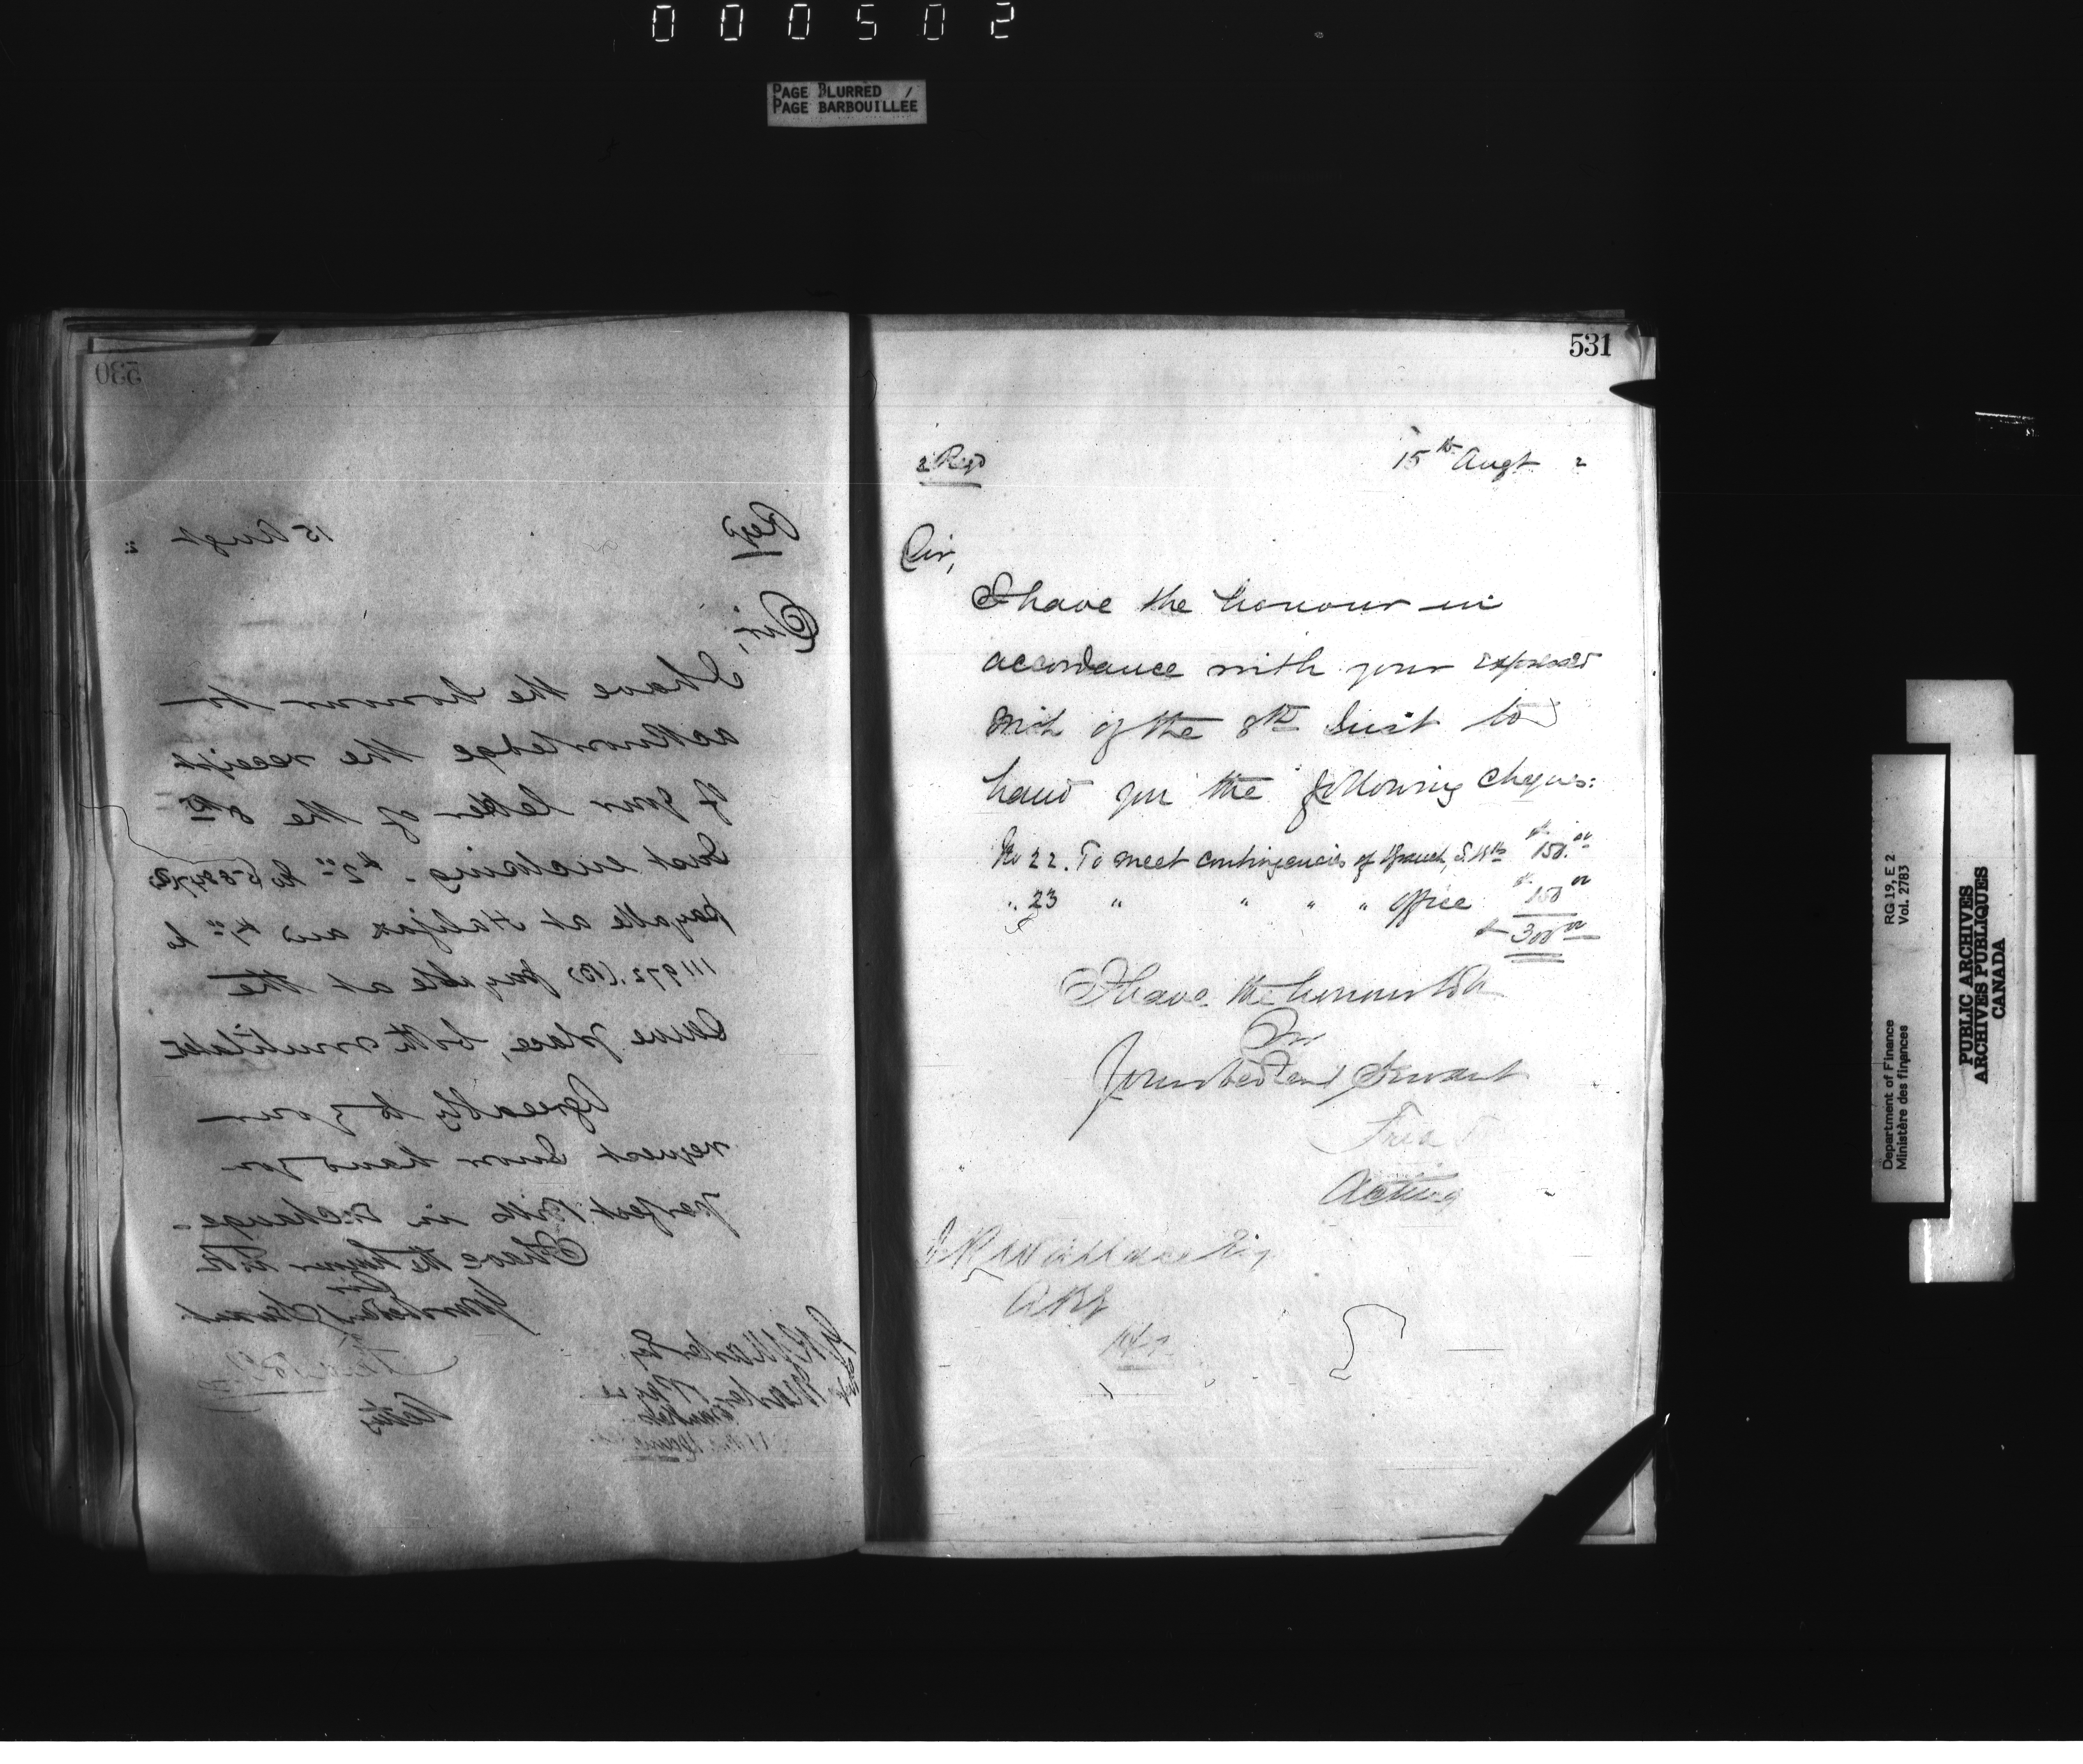 000502
PAGE BLURRED
PAGE BARBOUILLÉE
530
Regd
15 Augt 2
Sir,
I have the honour to
acknowledge the receipt
of your letter of the 8th
Inst enclosing - $2.00 No
payable at Halifax and $4.00 No
111972 (B) payable at the
same place, both mutilated
Agreeably to your
request I now hand you
perfect Bills in exchange -
I have the honour to be
Sir
Your obedient Servant
Acting
531
2 Regd
15th Augt 2
Sir,
I have the honour in
accordance with your expressed
wish of the 8th Inst to
hand you the following cheques:
No 22. To meet contingencies of Branch, $150.00
" 23 " " " " Office $150.00
$300.00
I have the honour to be
Sir
Your obedient Servant
Fred T
Acting
J R Wallace Esq
Department of Finance RG 19, E 2
Ministère des finances Vol. 2783
PUBLIC ARCHIVES
ARCHIVES PUBLIQUES
CANADA